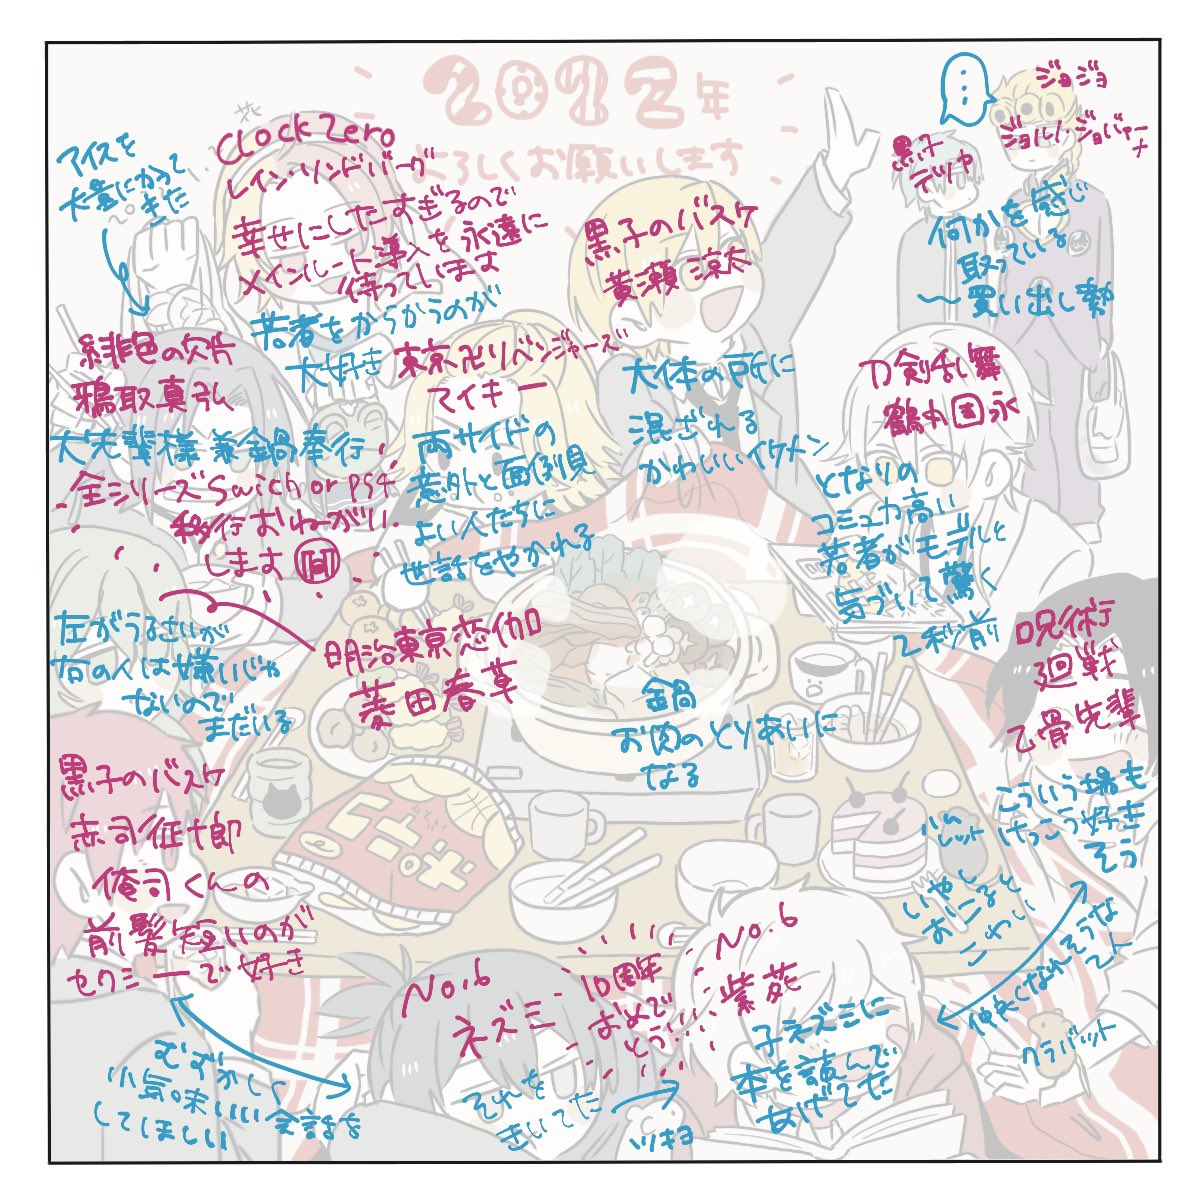 2022年
よろしくお願いします
ジョジョ
ジョルノ・ジョバァーナ
黒子
テツヤ
何かを感じ
取っている
〜買い出し勢
アイスを
大量にかって
きた
CLock Zero
レイン・リンドバーグ
幸せにしたすぎるので
メインルート導入を永遠に
待っています
若者をからかうのが
大好き
黒子のバスケ
黄瀬涼太
大体の所に
混ざれる
かわいいイケメン
緋色の欠片
鴉取真弘
大先輩様兼鍋奉行
全シリーズSwich or PS4
移行おねーがい
します
東京卍リベンジャーズ
マイキー
両サイドの
意外と面倒見
よい人たちに
世話をやかれる
刀剣乱舞
鶴丸国永
となりの
コミュ力高い
若者がモデルと
気づいて驚く
2秒前
左がうるさいが
右の人は嫌いじゃ
ないので
まだいる
明治東亰恋伽
菱田春草
鍋
お肉のとりあいに
なる
呪術
廻戦
乙骨先輩
こういう場も
けっこう好き
そう
ハム
レット
いやし
おこると
こわい
仲良くなれそうな
クラバット
黒子のバスケ
赤司征十郎
俺司くんの
前髪短いのが
セクシーで好き
むずかしく
小気味いい会話を
してほしい
No.6
ネズミ
それを
きいてた
10周年
おめで
とう!!!!
No.6
紫苑
子ネズミに
本を読んで
あげてた
ツキヨ